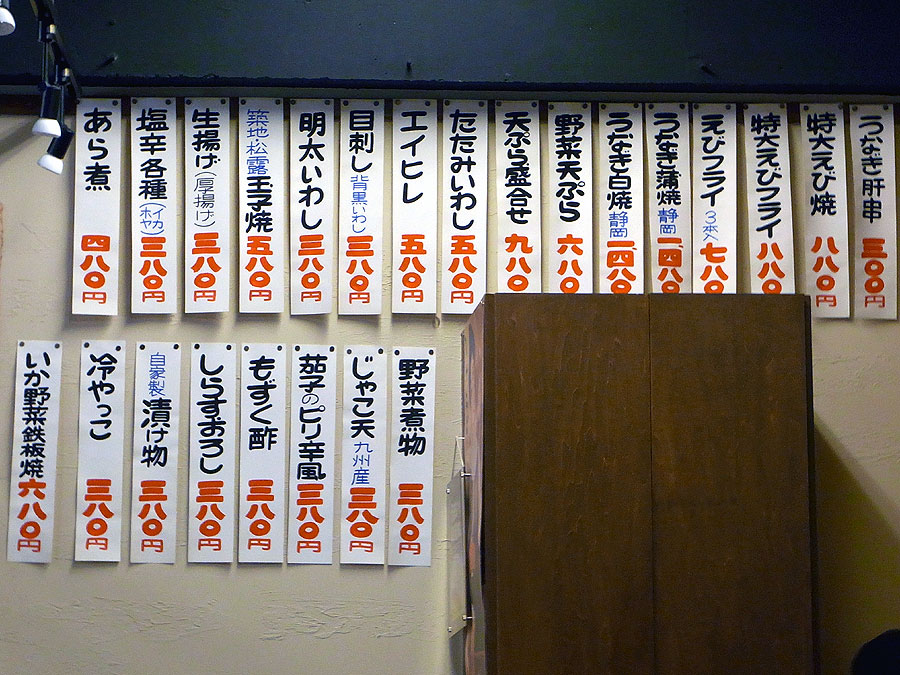 うなぎ肝串 三〇〇円
特大えび焼 八八〇円
特大えびフライ 八八〇
えびフライ 3本入 七八〇
うなぎ蒲焼 静岡 一、四八〇
うなぎ白焼 静岡 一、四八〇
野菜天ぷら 六八〇
天ぷら盛合せ 九八〇
たたみいわし 五八〇円
エイヒレ 五八〇円
目刺し 背黒いわし 三八〇円
明太いわし 三八〇円
築地・松露 玉子焼 五八〇円
生揚げ(厚揚げ) 三八〇円
塩辛各種(イカ ホヤ) 三八〇円
あら煮 四八〇円
野菜煮物 三八〇円
じゃこ天 九州産 三八〇円
茄子のピリ辛風 三八〇円
もずく酢 三八〇円
しらすおろし 三八〇円
自家製 漬け物 三八〇円
冷やっこ 三八〇円
いか野菜鉄板焼 六八〇円